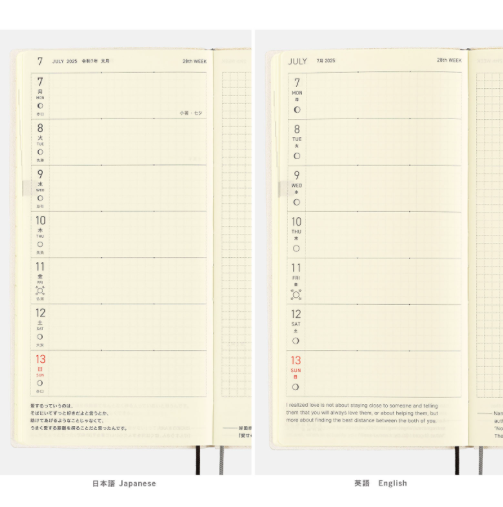 7 JULY 2025 令和7年 文月 28th WEEK
7
月
MON
小暑・七夕
8
火
TUE
9
水
WED
10
木
THU
11
金
FRI
12
土
SAT
13
日
SUN
愛するっていうのは、
そばにいてずっと好きだよと言うとか、
助けてあげるようなことじゃなくて、
うまく愛する距離を探ることだと思ったんです。
日本語 Japanese
JULY 7月 2025 28th WEEK
7
MON
月
8
TUE
火
9
WED
水
10
THU
木
11
FRI
金
12
SAT
土
13
SUN
日
I realized love is not about staying close to someone and telling
them that you will always love them, or about helping them, but
more about finding the best distance between the both of you.
英語 English